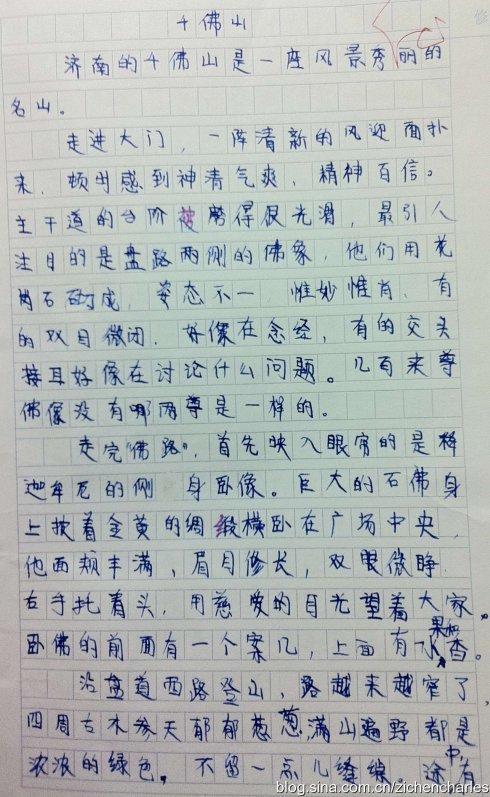 千佛山
济南的千佛山是一座风景秀丽的
名山。
走进大门，一阵清新的风迎面扑
来，顿时感到神清气爽，精神百倍。
主干道的台阶被磨得很光滑，最引人
注目的是盘路两侧的佛象，他们用花
岗石砌成，姿态不一 惟妙惟肖，有
的双目微闭，好像在念经，有的交头
接耳好像在讨论什么问题。几百来尊
佛像没有哪两尊是一样的。
走完“佛路”，首先映入眼帘的是释
迦牟尼的侧 身卧像。巨大的石佛身
上披着金黄的绸缎横卧在广场中央，
他面颊丰满，眉月修长，双眼微睁
右手托着头，用慈爱的目光望着大家。
卧佛的前面有一个案几，上面有水果和香。
沿盘道西路登山，路越来越窄了，
四周古木参天郁郁葱葱满山遍野都是
浓浓的绿色。不留一点儿缝隙。途中有
blog.sina.com.cn/zichencharles